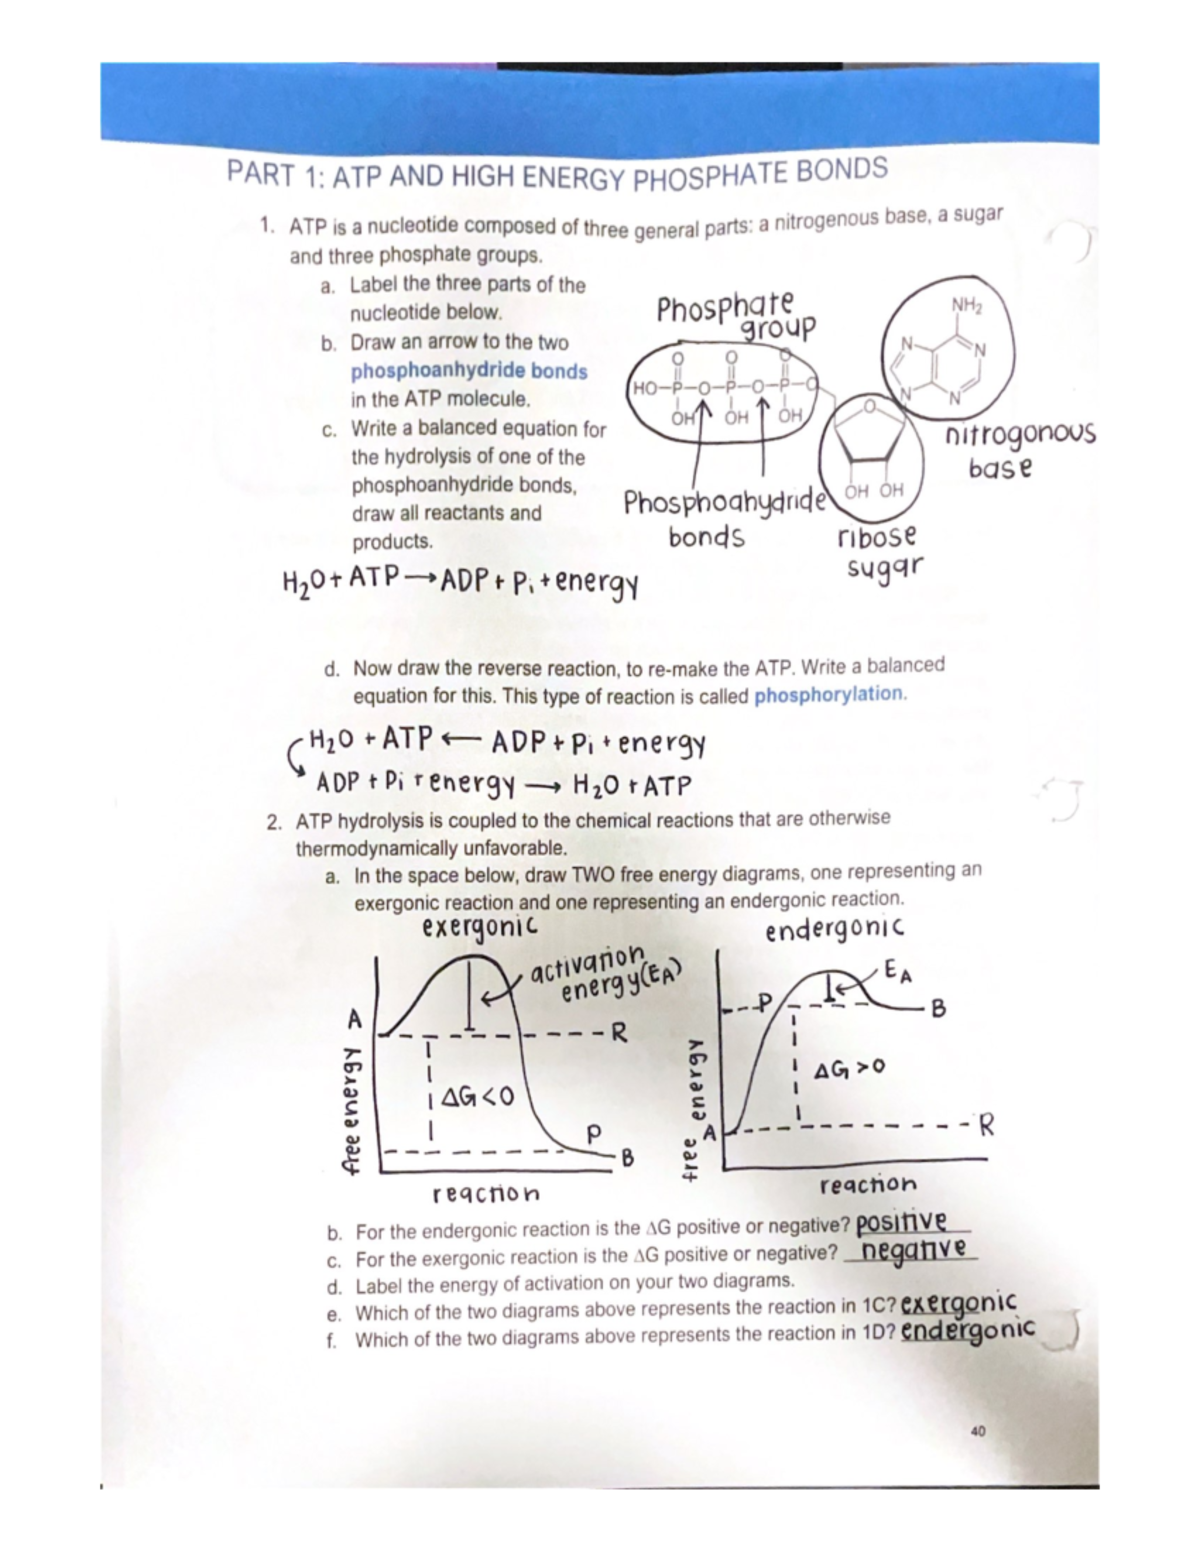 PART 1: ATP AND HIGH ENERGY PHOSPHATE BONDS
1. ATP is a nucleotide composed of three general parts: a nitrogenous base, a sugar
and three phosphate groups.
a. Label the three parts of the
nucleotide below.
b. Draw an arrow to the two
phosphoanhydride bonds
in the ATP molecule.
c. Write a balanced equation for
the hydrolysis of one of the
phosphoanhydride bonds,
draw all reactants and
products.
Phosphate
group
NH₂
N N
N N
O O O
HO-P-O-P-O-P-O
OH OH OH
O
OH OH
nitrogonous
base
Phosphoahydride
bonds
ribose
sugar
H₂O + ATP → ADP + Pi + energy
d. Now draw the reverse reaction, to re-make the ATP. Write a balanced
equation for this. This type of reaction is called phosphorylation.
H₂O + ATP ← ADP + Pi + energy
ADP + Pi + energy → H₂O + ATP
2. ATP hydrolysis is coupled to the chemical reactions that are otherwise
thermodynamically unfavorable.
a. In the space below, draw TWO free energy diagrams, one representing an
exergonic reaction and one representing an endergonic reaction.
exergonic
activation
energy (EA)
A
R
ΔG<0
P
B
free energy
reaction
endergonic
EA
P
B
ΔG>0
A
R
free energy
reaction
b. For the endergonic reaction is the ΔG positive or negative? positive
c. For the exergonic reaction is the ΔG positive or negative? negative
d. Label the energy of activation on your two diagrams.
e. Which of the two diagrams above represents the reaction in 1C? exergonic
f. Which of the two diagrams above represents the reaction in 1D? endergonic
40